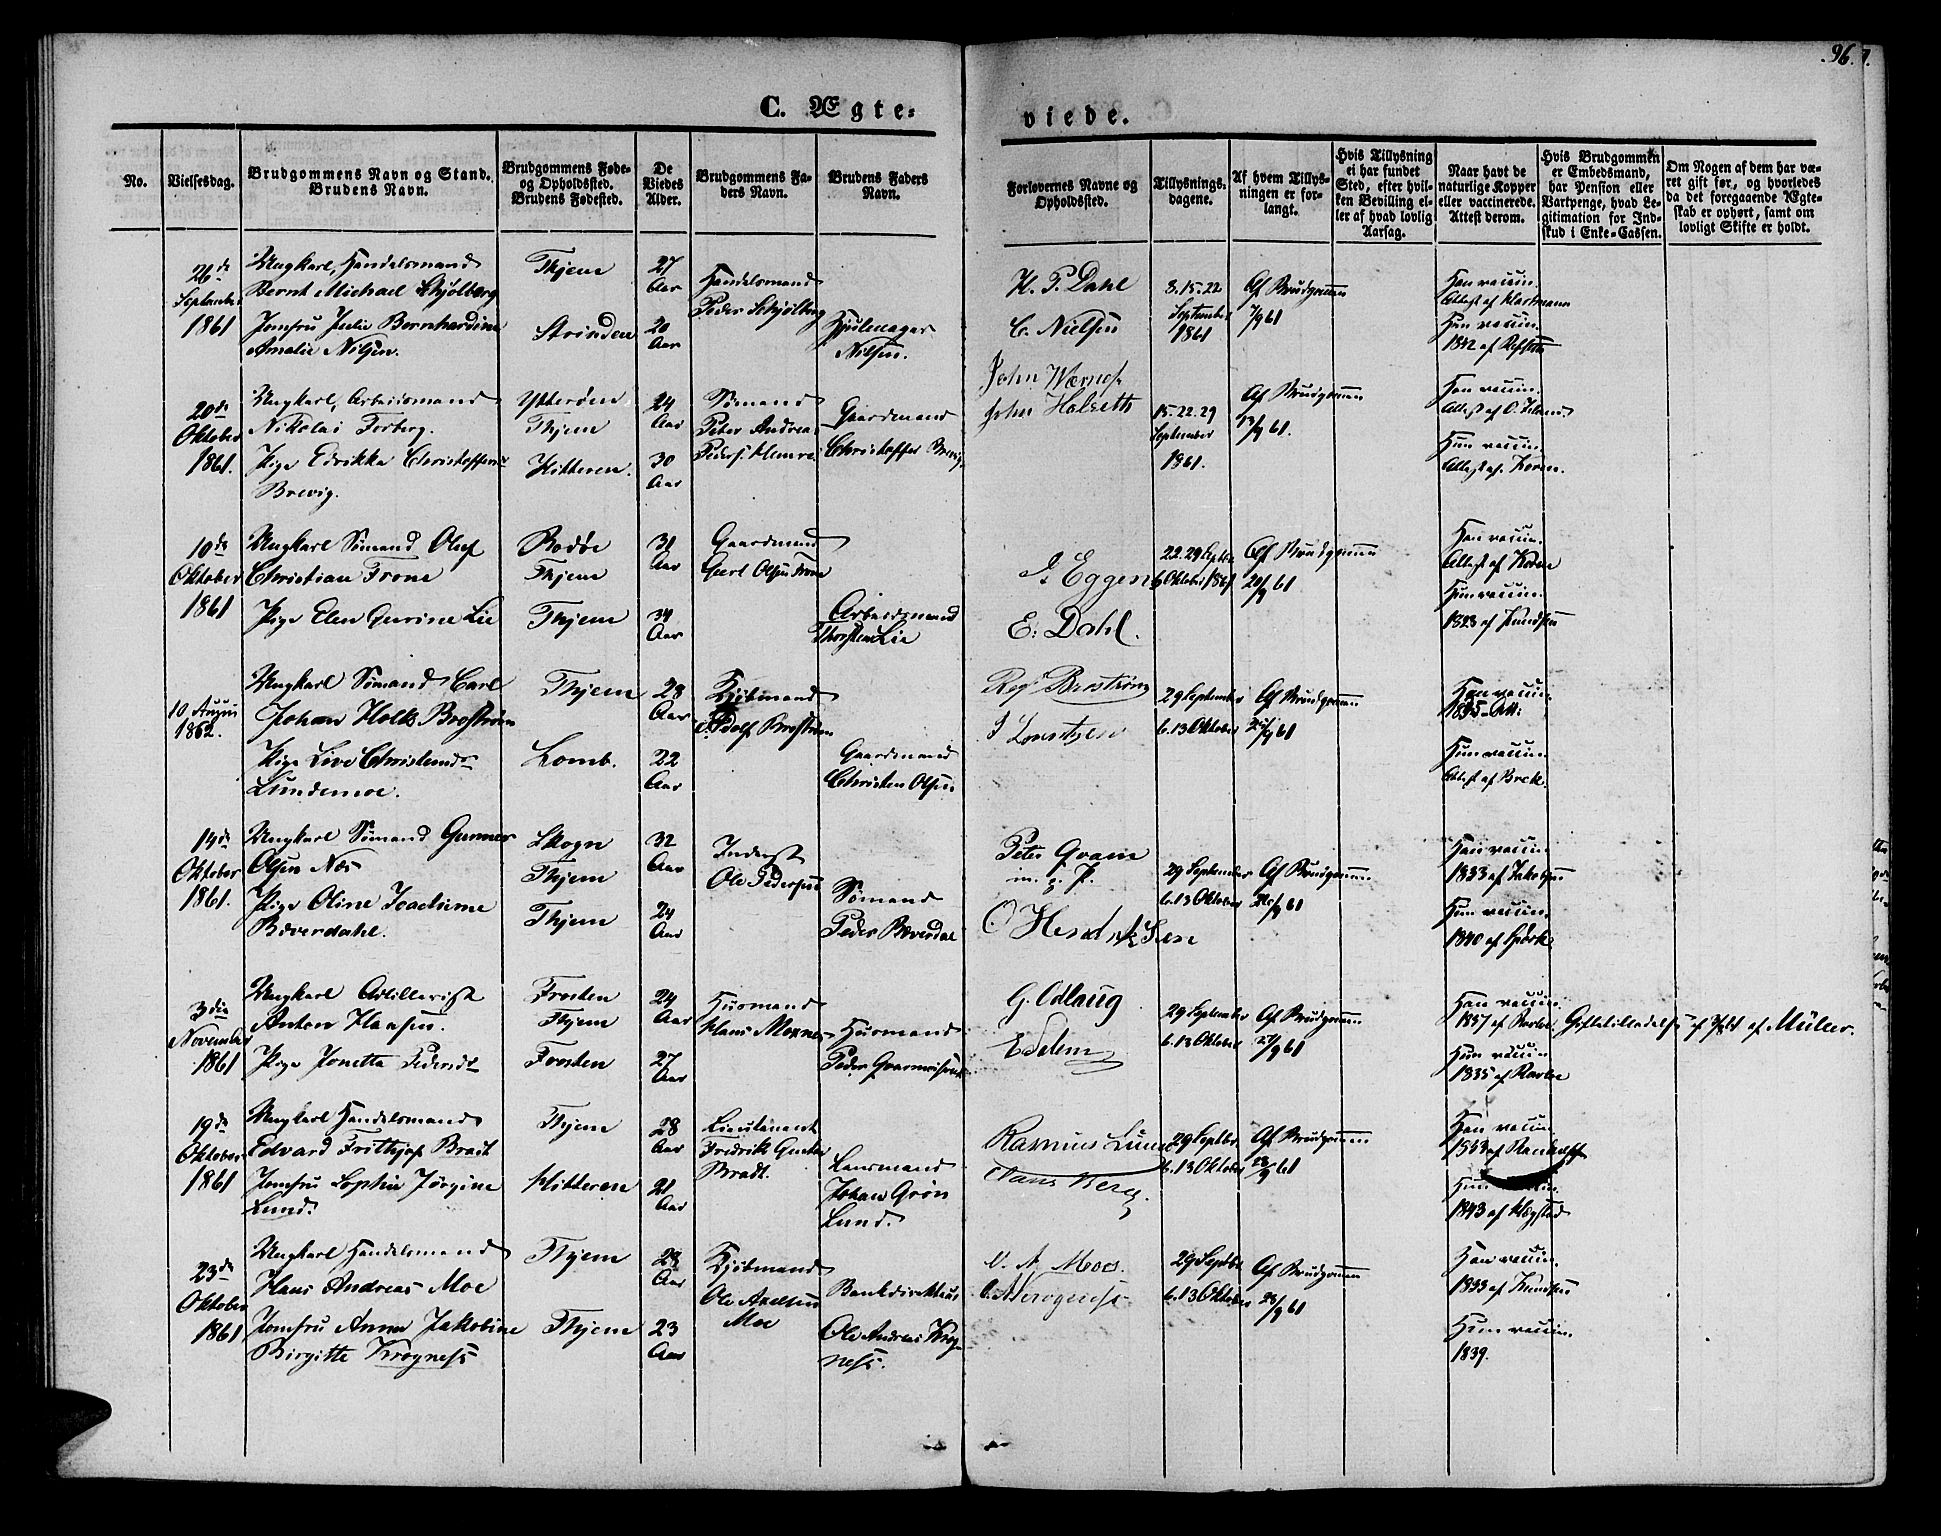 96.
C. Ægte-
viede.
No.
Vielsesdag.
Brudgommens Navn og Stand.
Brudens Navn.
Brudgommens Føde-
og Opholdssted.
Brudens Fødested.
De
Viedes
Alder.
Brudgommens Fa-
ders Navn.
Brudens Faders
Navn.
Forlovernes Navne og
Opholdssted.
Tillysnings-
dagene.
Af hvem Tillys-
ningen er for-
langt.
Hvis Tillysning
ei har fundet
Sted, efter hvil-
ken Bevilling el-
ler af hvad lovlig
Aarsag.
Naar havt de
naturlige Kopper
eller vaccinerede.
Attest derom.
Hvis Brudgommen
er Embedsmand,
har Pension eller
Vartpenge, hvad Le-
gitimation for Ind-
skud i Enke-Cassen.
Om Nogen af dem har væ-
ret gift før, og hvorledes
da det foregaaende Ægte-
skab er ophørt, samt om
lovligt Skifte er holdt.
26de
September
1861
Ungkarl, Handelsmand
Bernt Michael Schjølberg
Jomfru Julie Bernhardine
Amalie Nilsen.
Thjem
Strinden
27
Aar
20
Aar
Handelsmand
Peder Schjølberg
Hjulmager
Nilsen.
H. P. Dahl
C. Nielsen
8.15.22
September
1861
Af Brudgommen
7/9 61
Han vaccin.
Attest af
Hun vaccin.
1842 af
20de
Oktober
1861.
Ungkarl, Arbeidsmand
Nikolai Forberg.
Pige Edrikka Christoffersdr
Brevig.
Ytterøen
Thjem
Hitteren.
24
Aar
30
Aar
Sømand
Peter Andreas
Gaardmand
Christoffer Brevig
John Wærnes
John Halseth
15.22.29
September
1861.
Af Brudgommen
13/9 61.
Han vaccin.
Attest af
Hun vaccin.
Attest af
10de
Oktober
1861
Ungkarl Sømand Oluf
Christian Trone
Pige Elen Gurine Lie
Bodøe
Thjem
Thjem
31
Aar
34
Aar
Gaardmand
Olsen Trone
Arbeidsmand
Thorsten Lie
J. Eggen
E. Dahl.
22.29 Septbr
6 Oktober 1861
Af Brudgommen
20/9 61
Han vaccin.
Attest af
Hun vaccin.
1823 af Knudsen
10 August
1862.
Ungkarl Sømand Carl
Johan Holk Broström
Pige Live Christensdr
Lundemoe.
Thjem
Lomb.
28
Aar
22
Aar
Kjøbmand
Adolf Broström
Gaardmand
Christen Olsen
Broström
29 September
6.13 Oktober
Af Brudgommen
/9 61
Han vaccin.
1835 Att:
Hun vaccin.
Attest af Brek.
14de
Oktober
1861.
Ungkarl Sømand Gunner
Olsen Næs
Pige Oline Joachime
Bæverdahl.
Skogn
Thjem
Thjem
32
Aar
24
Aar
Inderst
Ole Pedersen
Sømand
Peder Bæverdal
Peter Qvam
m. p. P.
O Hendriksen
29 September
6.13 Oktober
Af Brudgommen
/9 61
Han vaccin.
1833 af Jakobsen
Hun vaccin.
1840 af
3die
November
1861
Ungkarl Artillerist
Anton Hansen.
Pige Jonetta Pedersdr
Frosten
Thjem
Frosten
24
Aar
27
Aar
Husmand
Hans Moxnes
Husmand
Peder
G. Odlaug
E Selem
29 September
6.13 Oktober
Af Brudgommen
27/9 61
Han vaccin.
1857 af
Hun vaccin.
1835 af
Giftetilladelse af af Müller.
19de
Oktober
1861
Ungkarl Handelsmand
Edvard Frithjof Bradt
Jomfru Sophie Jørgine
Lund.
Thjem
Hitteren
28
Aar
21
Aar
Lieutenant
Fredrik
Bradt.
Lensmand
Johan Grøn
Lund.
Rasmus Lund
Claus Berg.
29 Septbr.
6.13 Oktober
Af Brudgommen
28/9 61
Han vaccin.
1833 af
Hun vaccin.
1843 af
23de
Oktober
1861
Ungkarl Handelsmand
Hans Andreas Moe
Jomfru Anna Jakobine
Birgitte Krogness
Thjem
Thjem
28
Aar
23
Aar
Kjøbmand
Ole Axelsen
Moe
Bankdirekteur
Ole Andreas Krog-
ness.
29 Septbr
6.13 Oktober
Af Brudgommen
28/9 61
Han vaccin.
1833 af Knudsen
Hun vaccin.
1839.